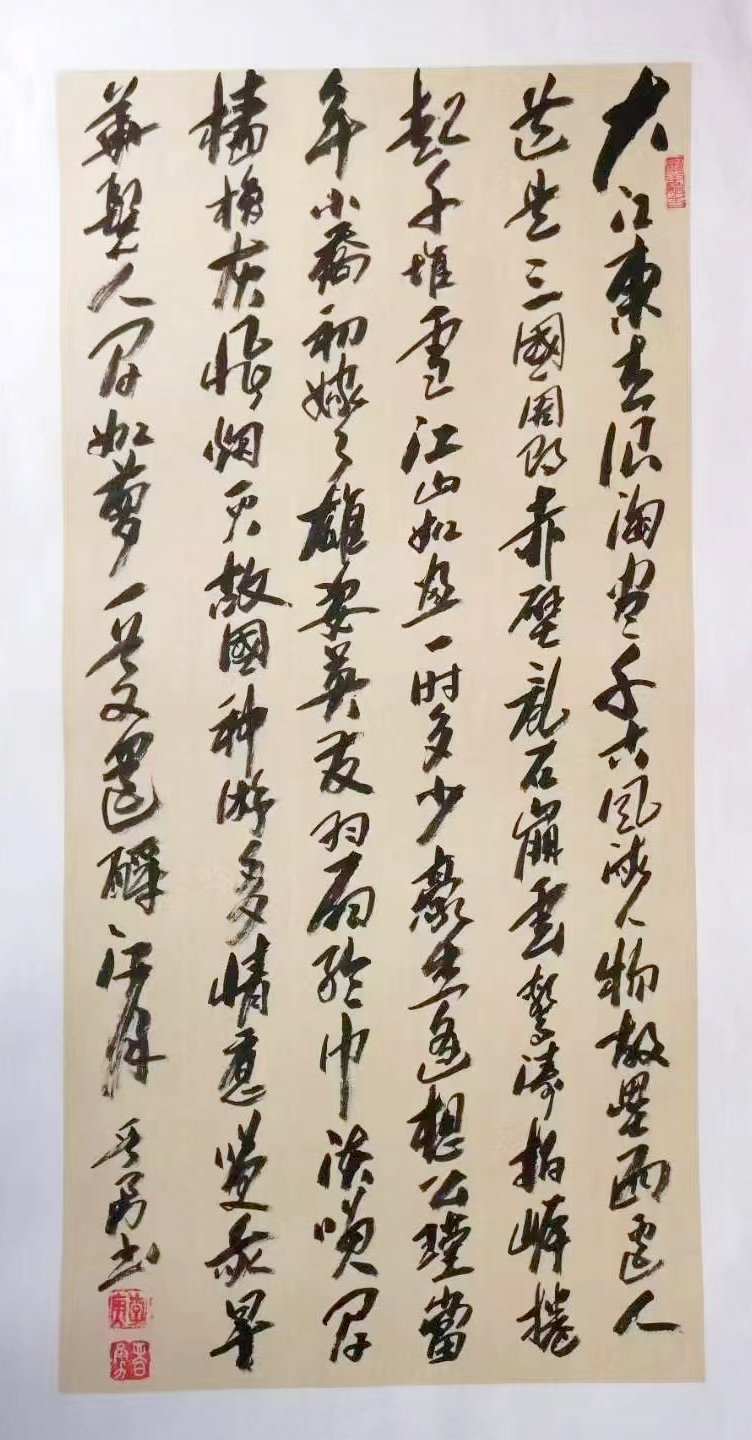 大江東去浪淘盡千古風流人物故壘西邊人
道是三國周郎赤壁亂石崩雲驚濤拍岸捲
起千堆雪江山如畫一时多少豪杰遙想公瑾當
年小喬初嫁了雄姿英发羽扇綸巾談笑間
檣櫓灰飛烟灭故國神游多情應笑我早
華髮人間如夢一尊還酹江月
晋勇书
晋勇